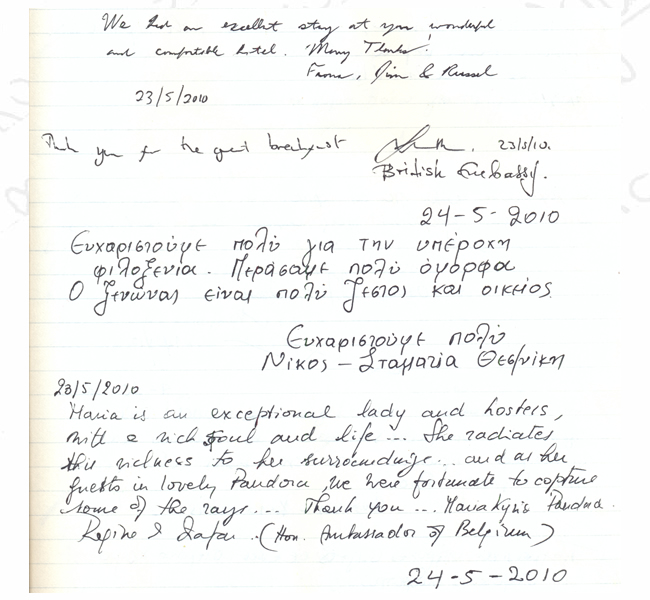 We had an excellent stay at your wonderful
and comfortable hotel. Many Thanks!
From, Jim & Russel
23/5/2010
Thank you for the great breakfast
23/5/10.
British Embassy.
24-5-2010
Ευχαριστούμε πολύ για την υπέροχη
φιλοξενία. Περάσαμε πολύ όμορφα
Ο ξενώνας είναι πολύ ζεστος και οικείος.
Ευχαριστούμε πολύ
Νίκος - Σταματία Θεσ/νίκη
23/5/2010
Maria is an exceptional lady and hostess,
with a rich soul and life... She radiates
this richness to her surroundings... and as her
guests in lovely Pandora, we were fortunate to capture
some of the rays... Thank you... Maria Pandora.
Regine & (Hon. Ambassador of Belgium)
24-5-2010